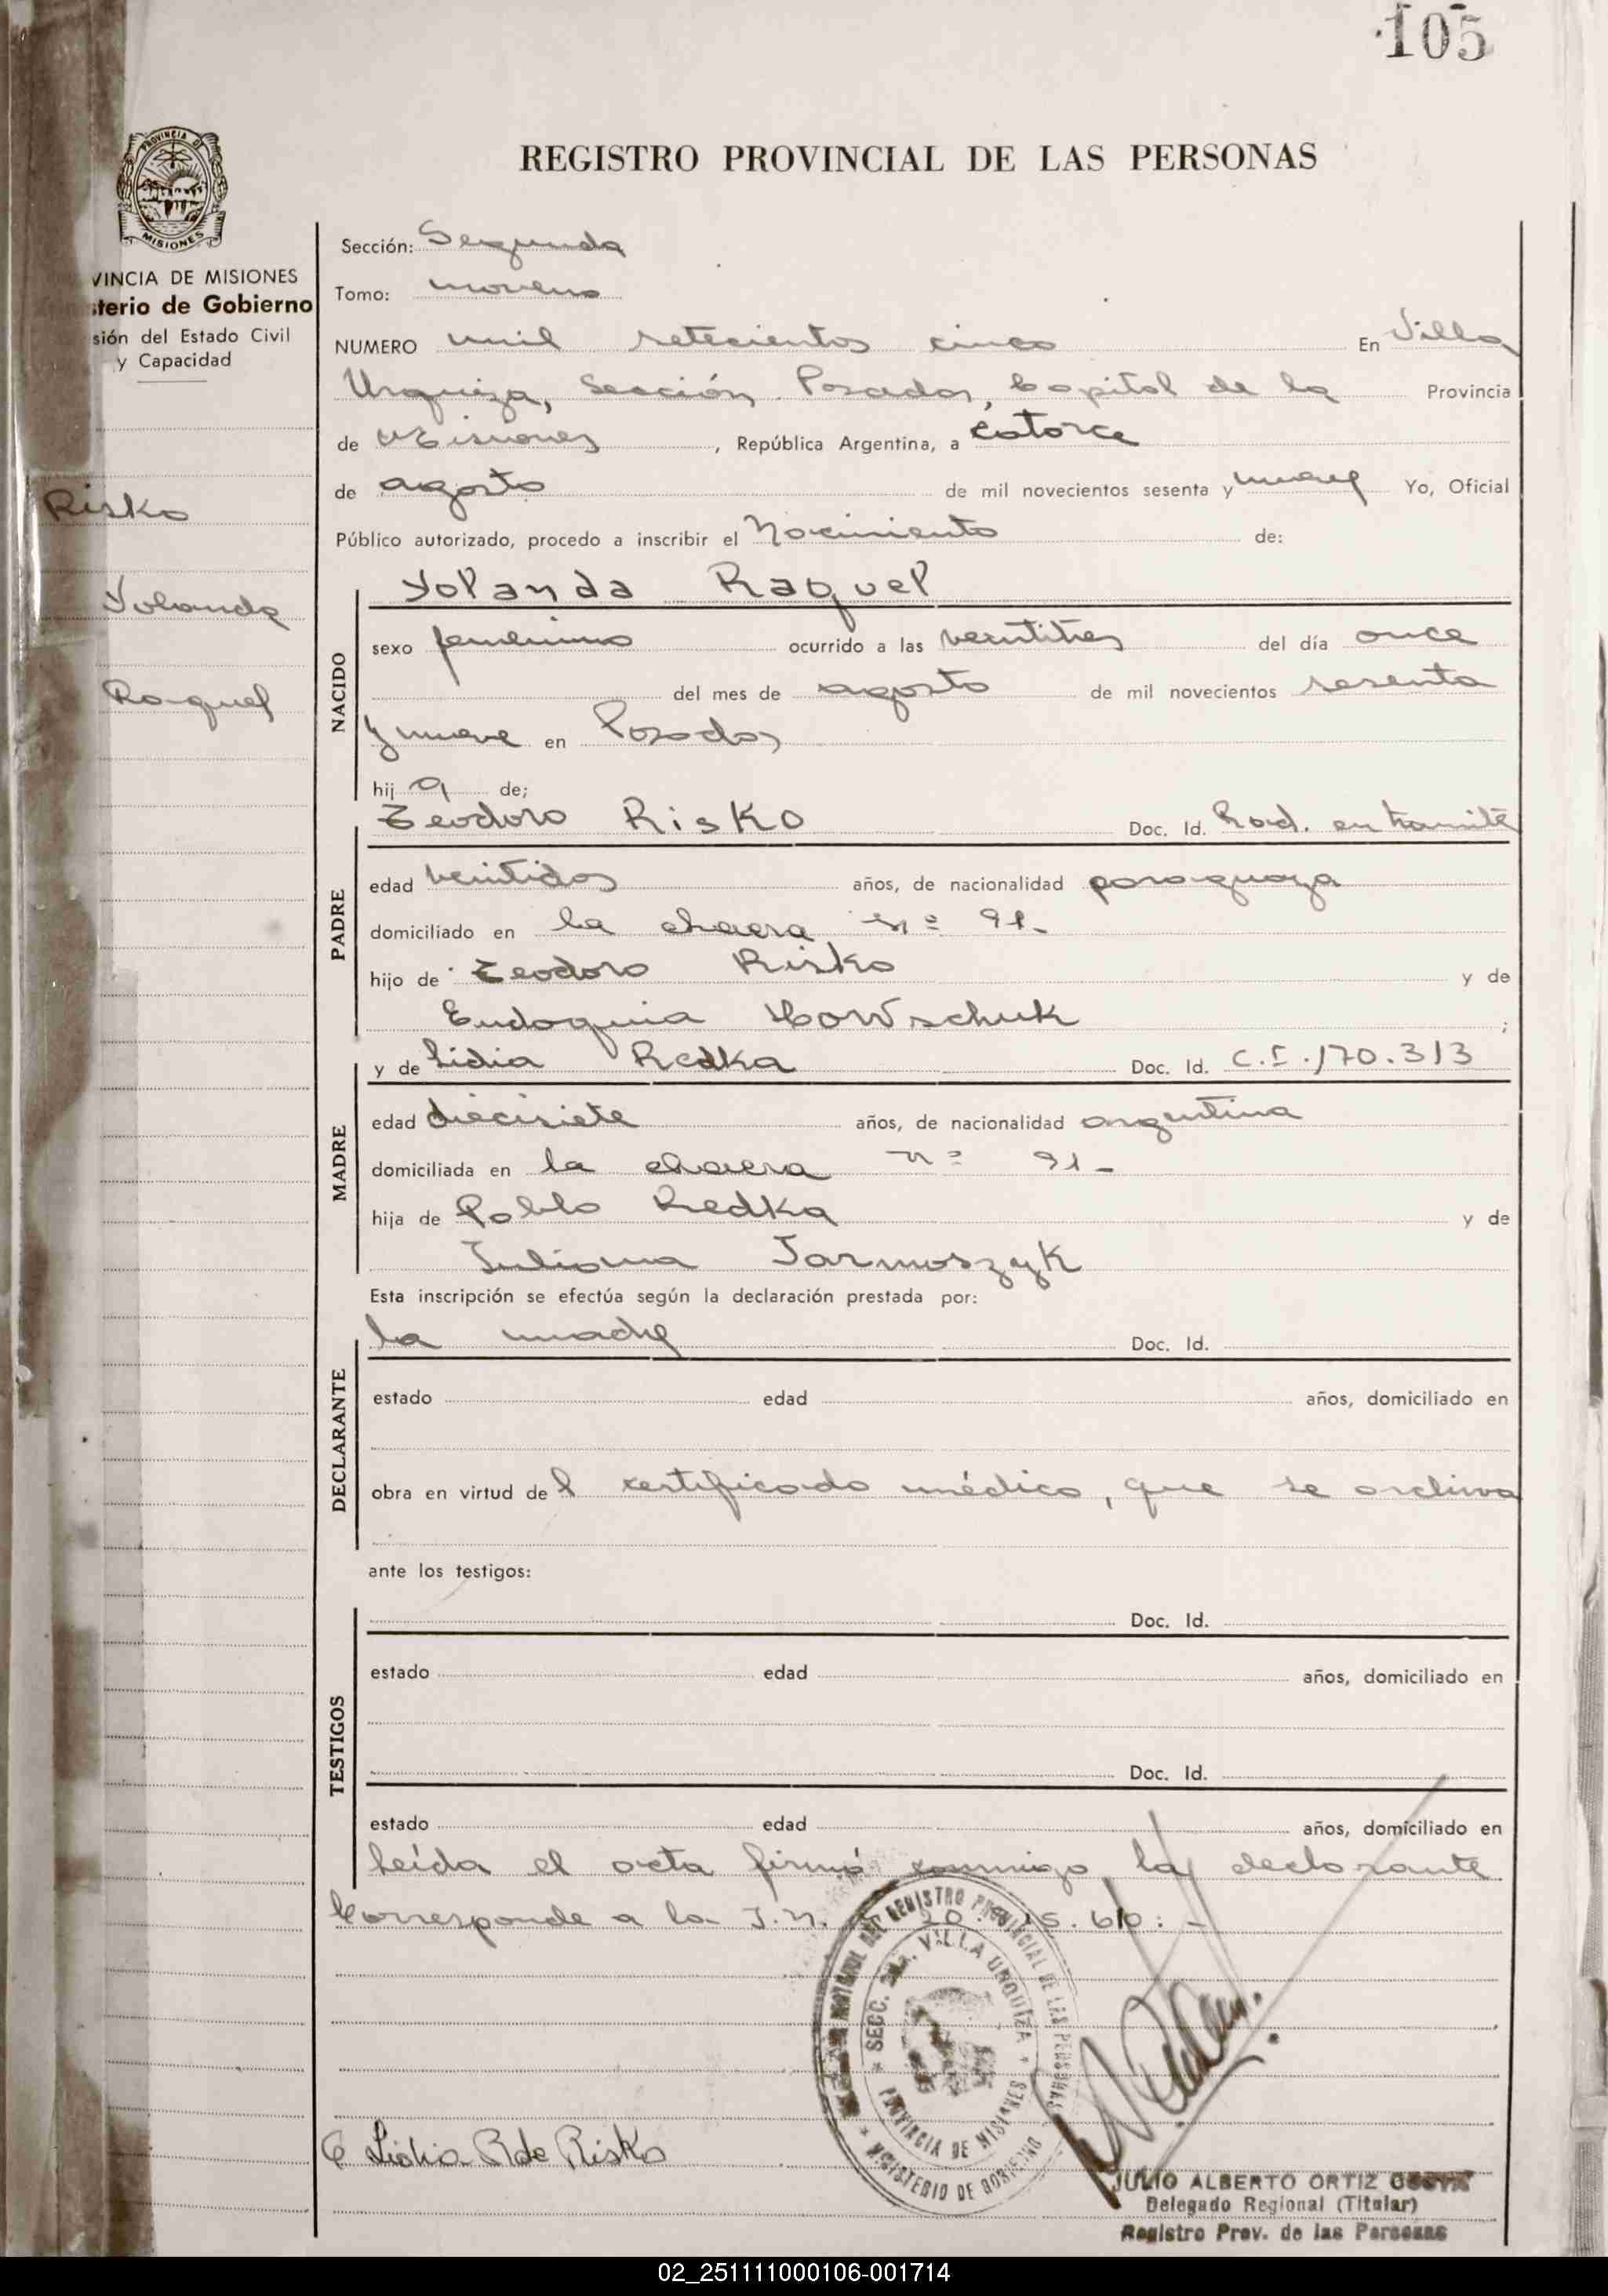 105
PROVINCIA DE
MISIONES
REGISTRO PROVINCIAL DE LAS PERSONAS
VINCIA DE MISIONES
sterio de Gobierno
sión del Estado Civil
y Capacidad
Risko
Yolanda
Raquel
Sección: Segunda
Tomo: noveno
NUMERO mil setecientos cinco En Villa
Urquiza, Sección Posadas, Capital de la Provincia
de Misiones, República Argentina, a catorce
de agosto de mil novecientos sesenta y nueve Yo, Oficial
Público autorizado, procedo a inscribir el Nacimiento de:
NACIDO
Yolanda Raquel
sexo femenino ocurrido a las veintitres del día once
del mes de agosto de mil novecientos sesenta
y nueve en Posadas
hija de;
PADRE
Teodoro Risko Doc. Id. Rad. en tramite
edad veintidos años, de nacionalidad paraguaya
domiciliado en la chacra nº 91-
hijo de Teodoro Risko y de
Eudoquia Howschuk ;
MADRE
y de Lidia Redka Doc. Id. C.I.170.313
edad diecisiete años, de nacionalidad argentina
domiciliada en la chacra nº 91-
hija de Pablo Redka y de
Juliana Jarmoszyk
Esta inscripción se efectúa según la declaración prestada por:
DECLARANTE
la madre Doc. Id.
estado edad años, domiciliado en
obra en virtud del certificado médico, que se archiva
ante los testigos:
TESTIGOS
Doc. Id.
estado edad años, domiciliado en
Doc. Id.
estado edad años, domiciliado en
Leída el acta firmó conmigo la declarante
Corresponde a la
REGISTRO PROVINCIAL DE LAS PERSONAS
SECC. 2da. VILLA URQUIZA
PROVINCIA DE MISIONES
MINISTERIO DE GOBIERNO
Lidia R de Risko
JULIO ALBERTO ORTIZ
Delegado Regional (Titular)
Registro Prov. de las Personas
02_251111000106-001714